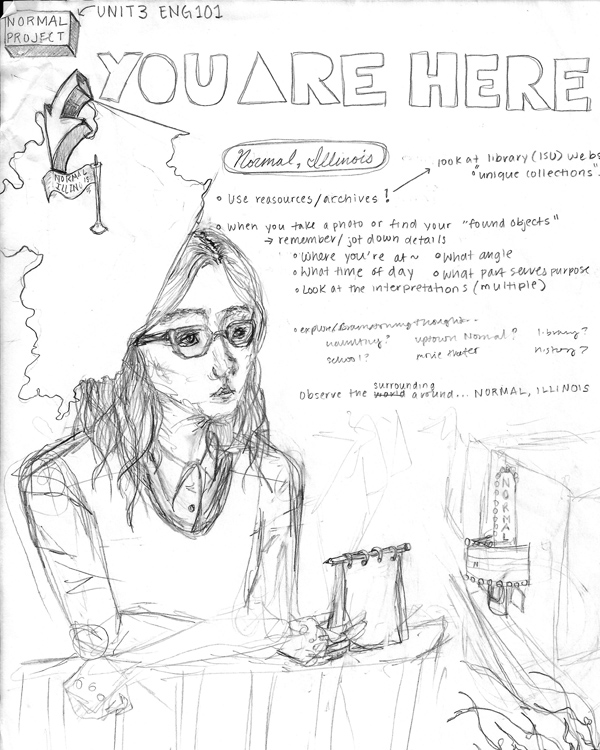 NORMAL PROJECT
UNIT3 ENG101
YOU ARE HERE
NORMAL ILLINOIS
Normal, Illinois
look at library (ISU) webs
"unique collections"
Use reasources/archives!
When you take a photo or find your "found objects"
→ remember/jot down details
Where you're at~ What angle
What time of day What part serves purpose
Look at the interpretations (multiple)
explore/Brainstorming thoughts..
haunting? uptown Normal? library?
school? movie theater history?
Observe the surrounding around... NORMAL, ILLINOIS
NORMAL